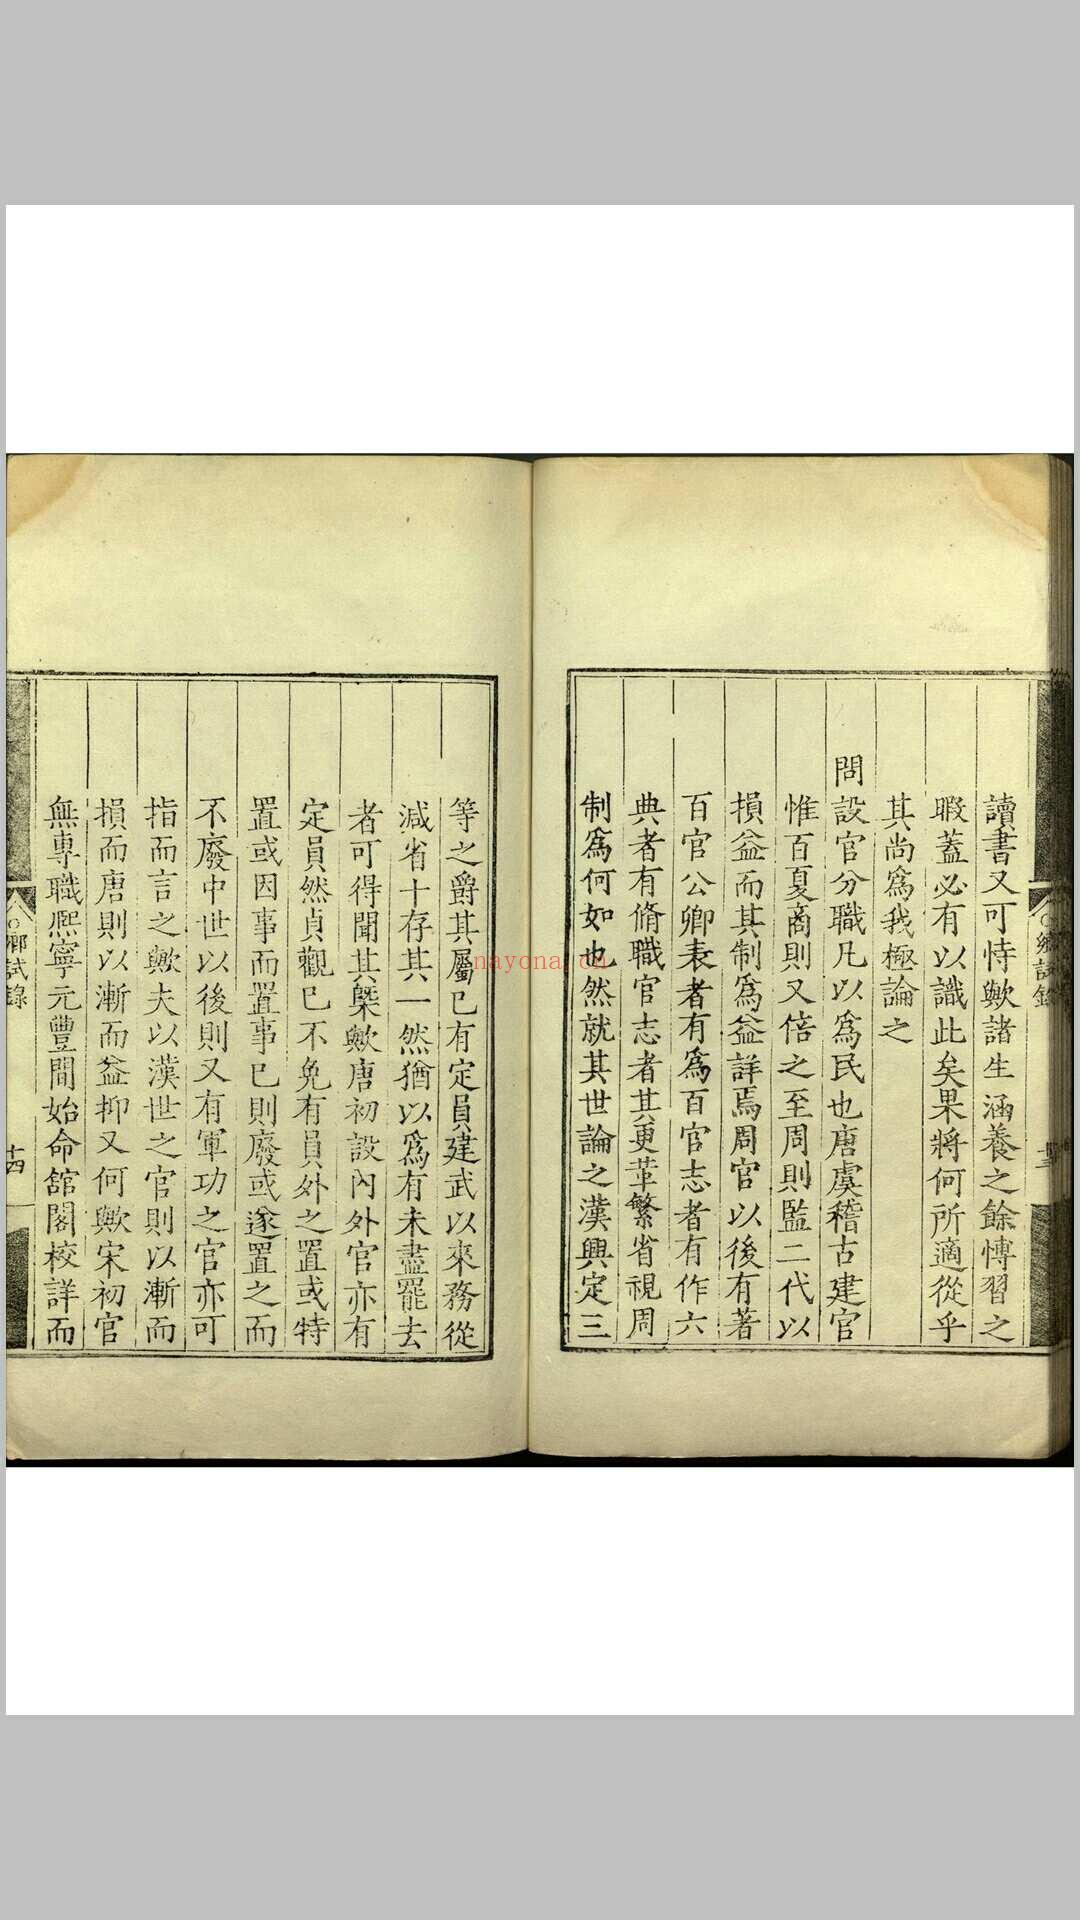 讀書又可恃歟諸生涵養之餘愽習之
暇蓋必有以識此矣果將何所適從乎
其尚爲我極論之
問設官分職凡以爲民也唐虞稽古建官
惟百夏商則又倍之至周則監二代以
損益而其制爲益詳焉周官以後有著
百官公卿表者有爲百官志者有作六
典者有脩職官志者其更革繁省視周
制爲何如也然就其世論之漢興定三
鄉試錄
等之爵其屬已有定員建武以來務從
減省十存其一然猶以爲有未盡罷去
者可得聞其槩歟唐初設內外官亦有
定員然貞觀已不免有員外之置或特
置或因事而置事已則廢或遂置之而
不廢中世以後則又有軍功之官亦可
指而言之歟夫以漢世之官則以漸而
損而唐則以漸而益抑又何歟宋初官
無專職熈寧元豐間始命舘閣校詳而
鄉試錄
十四
nayona.cn